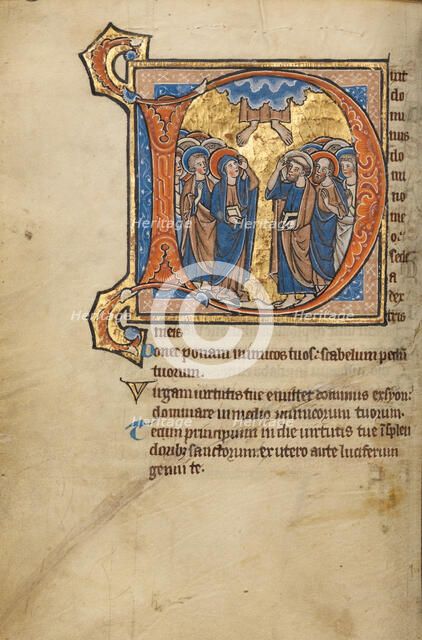 Dixit
do
mi
nus
do
mi
no
me
o:
sede
a
dex
tris
meis.
Donec ponam inimicos tuos: scabelum pedum
tuorum.
Virgam virtutis tue emittet dominus ex syon:
dominare in medio inimicorum tuorum.
Tecum principium in die virtutis tue in splen
doribus sanctorum: ex utero ante luciferum
genui te.
Heritage
Heritage
Heritage
Heritage